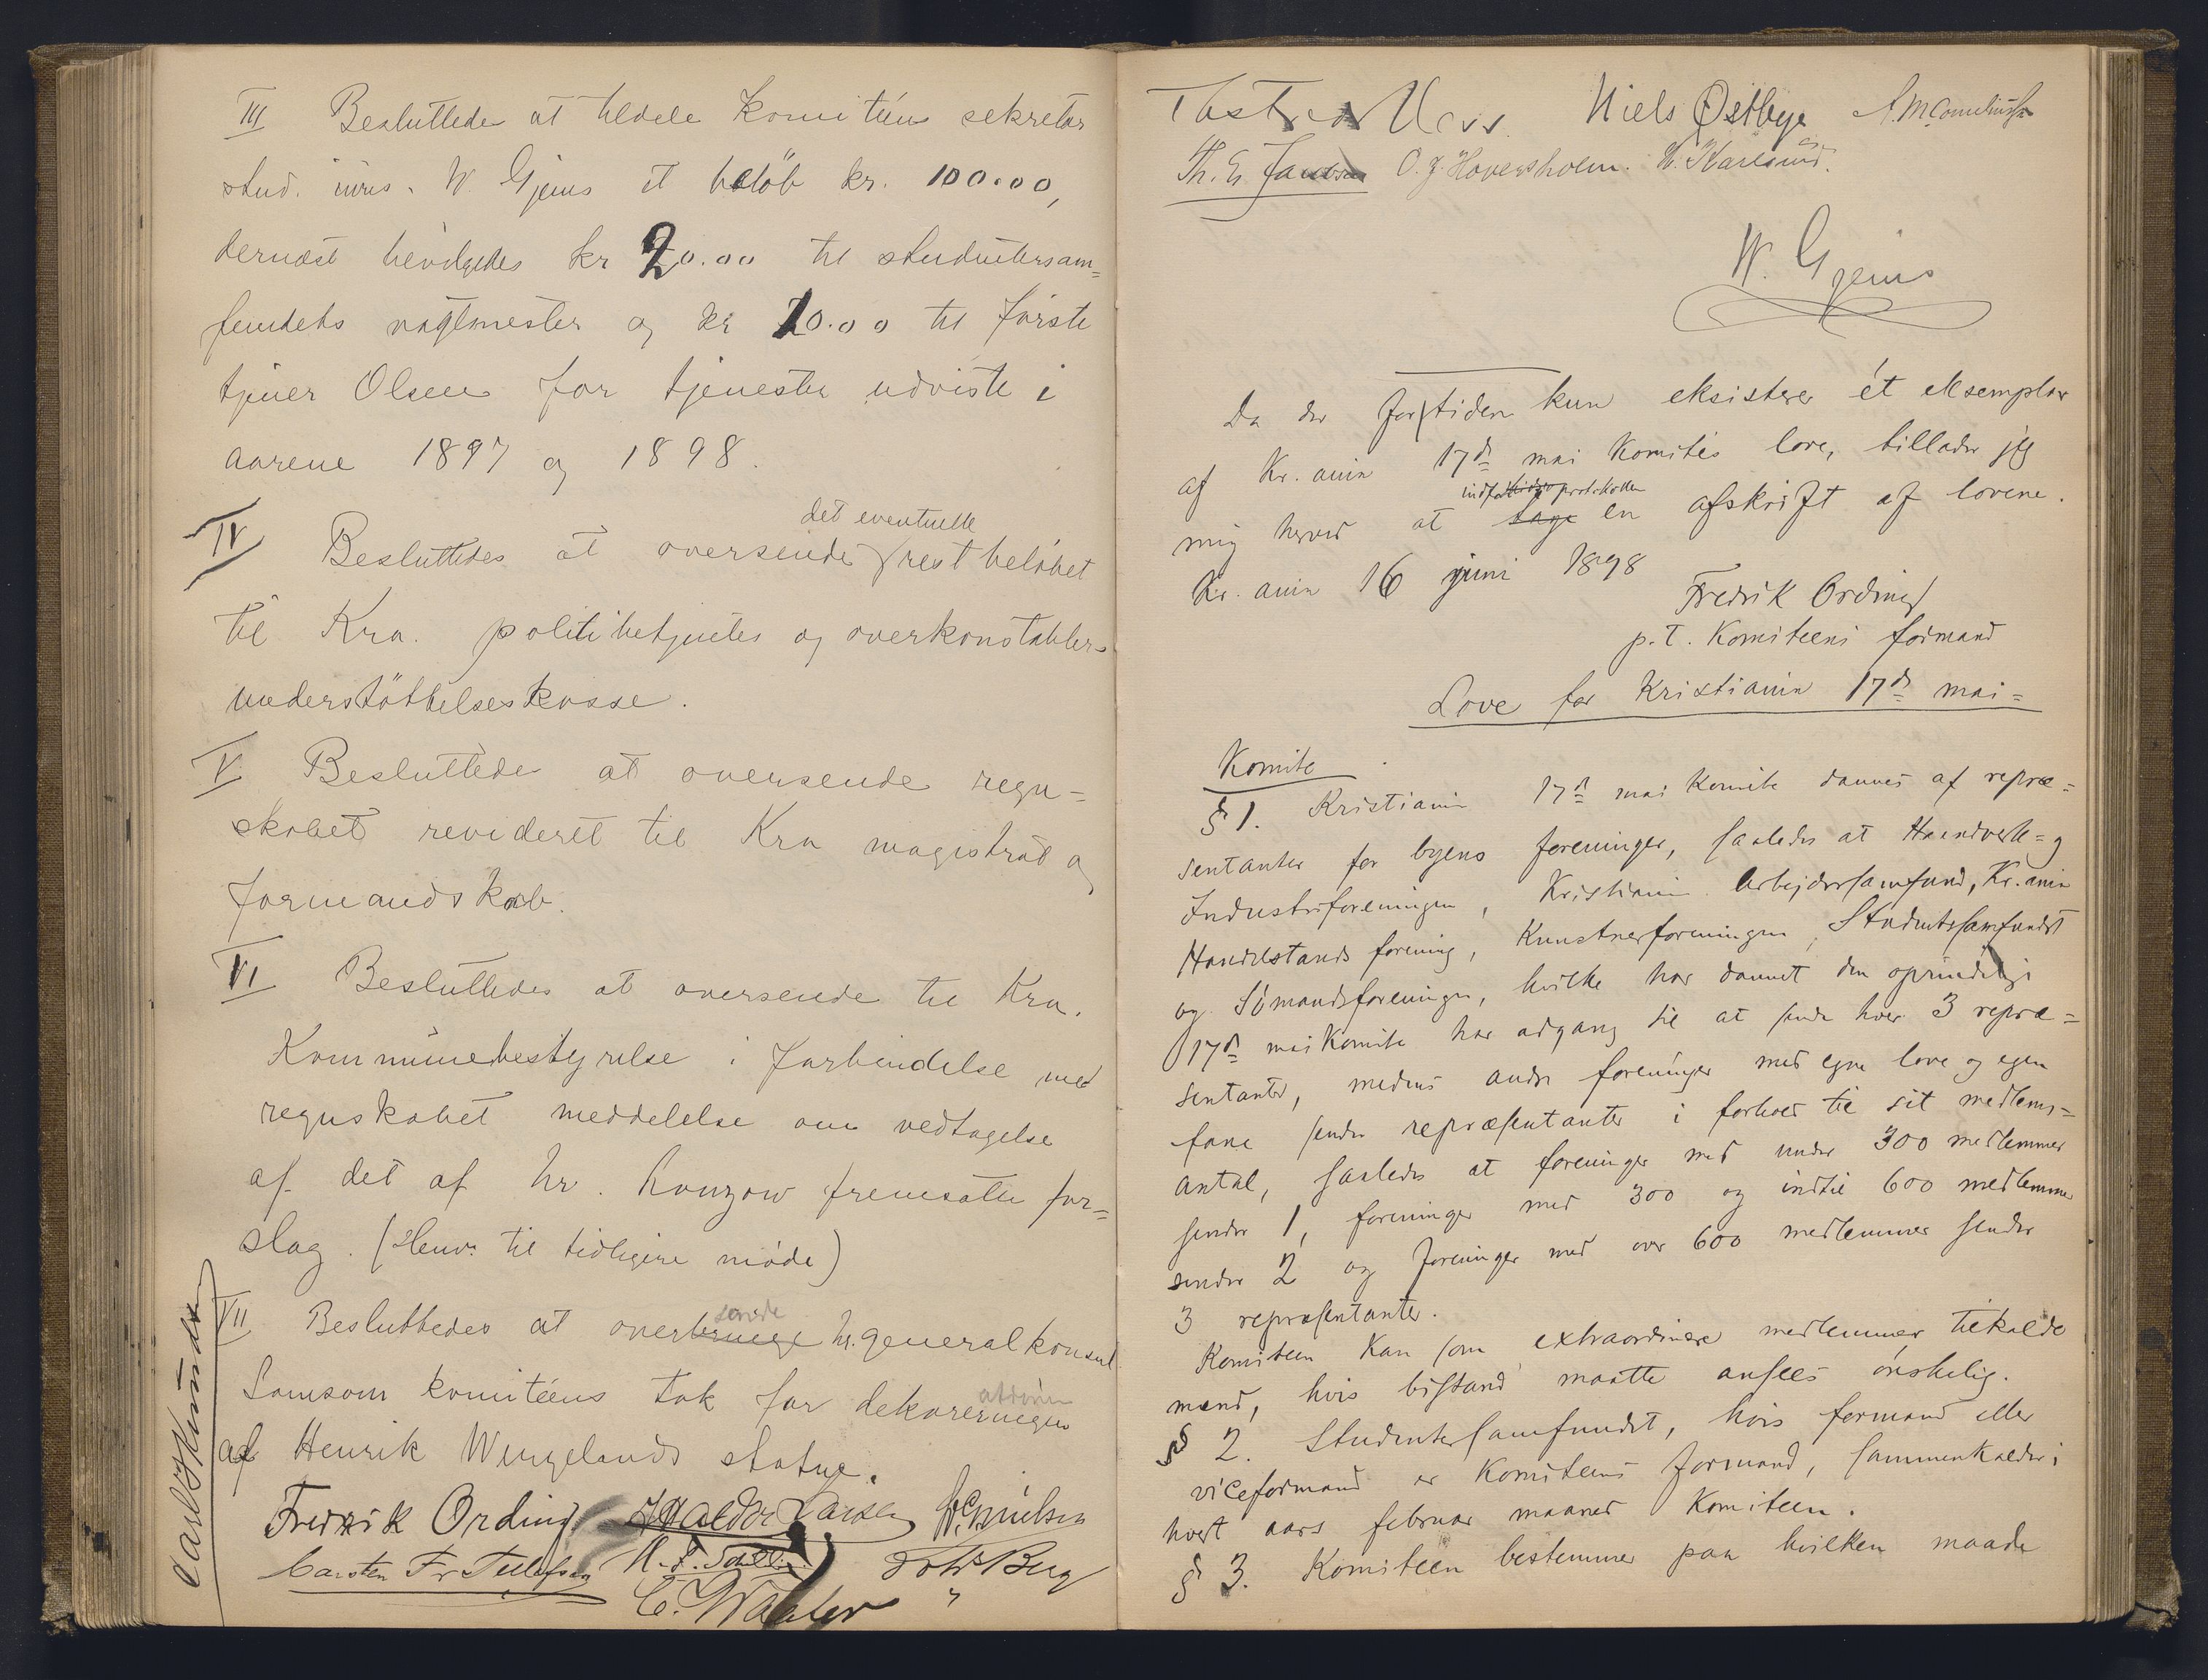 III Besluttede at tildele Komitéens sekretær
stud. iuris. W. Gjems et beløb kr. 100.00,
dernæst bevilgedes kr 20.00 til studentersam=
fundets vagtmester og kr 10.00 til første
tjener Olsen for tjenester udviste i
aarene 1897 og 1898.
IV Besluttedes at oversende det eventuelle restbeløbet
til Kra. politibetjentes og overkonstablers
understøttelseskasse.
V Besluttede at oversende regn=
skabet revideret til Kra magistrat og
formandskab.
VI Besluttedes at oversende til Kra.
Kommunebestyrelse i forbindelse med
regnskabet meddelelse om vedtagelse
af det af hr. Konzow fremsatte for=
slag. (Henv. til tidligere møde)
VII Besluttedes at overbringe sende hr. generalkonsul
Samson komitéens tak for dekoreringen ationen
af Henrik Wergelands statue.
Fredrik Ording Halvdor Larsen W. Nielsen
Carsten Fr Tellefsen Joh. Berg
C. Waaler
Carl Skunder
Niels Østbye
O. J. Hoversholm. H. Karlsund.
W. Gjems
Da der fortiden kun eksisterer ét eksemplar
af Kr.ania 17de mai Komités love, tillader jeg
mig herved at tage indføre protokollen en afskrift af lovene.
Kr.ania 16 juni 1898
Fredrik Ording
p.t. Komiteens formand
Love for Kristiania 17de mai=
Komite
§ 1. Kristiania 17de mai Komite dannes af repræ=
sentanter for byens foreninger, saaledes at Haandverk= og
Industriforeningen, Kristiania Arbejdersamfund, Kr.ania
Handelstands forening, Kunstnerforeningen, Studentersamfundet
og Sømandsforeningen, hvilke har dannet den oprindelige
17de mai Komite har adgang til at sende hver 3 repræ=
sentanter, medens andre foreninger med egne love og egen
fane sender repræsentanter i forhold til sit medlems=
antal, saaledes at foreninger med under 300 medlemmer
sender 1, foreninger med 300 og indtil 600 medlemmer
sender 2 og foreninger med over 600 medlemmer sender
3 repræsentanter.
Komiteen kan som extraordinære medlemmer tilkalde
mænd, hvis bistand maatte ansees ønskelig.
§ 2. Studentersamfundet, hvis formand eller
viceformand er Komiteens formand, sammenkalder i
hvert aars februar maaned Komiteen.
§ 3. Komiteen bestemmer paa hvilken maade